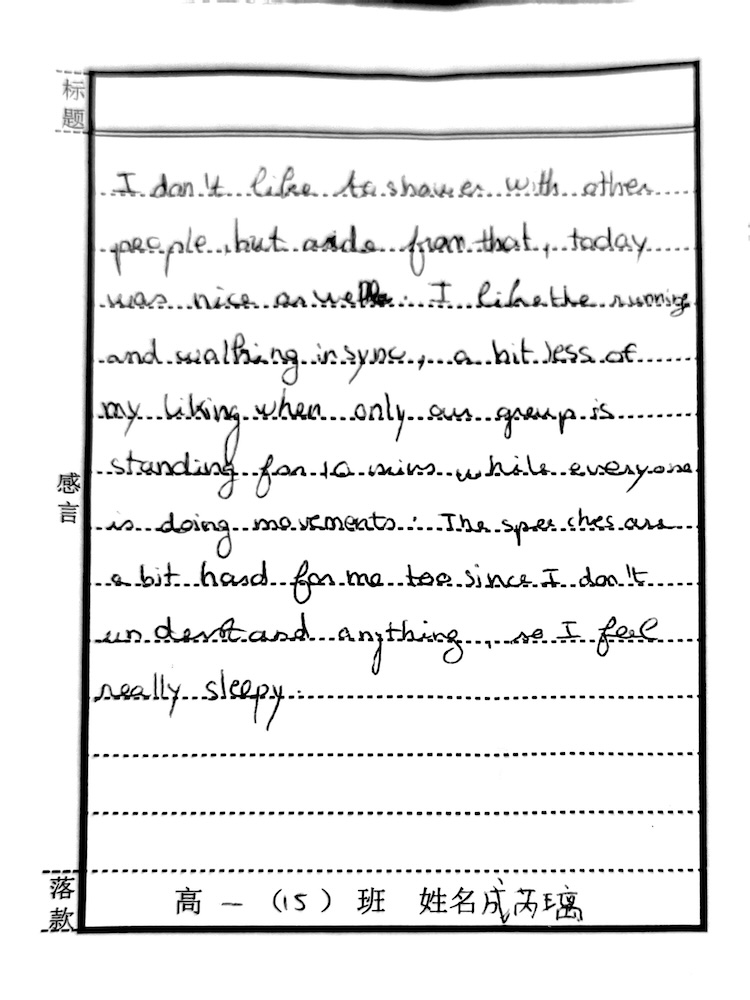 标题
I don't like to shower with other
people, but aside from that, today
was nice as well. I like the running
and walking in sync, a bit less of
my liking when only our group is
standing for 10 mins while everyone
is doing movements. The speeches are
a bit hard for me too since I don't
understand anything, so I feel
really sleepy.
感言
落款
高一（15）班 姓名成芮璃